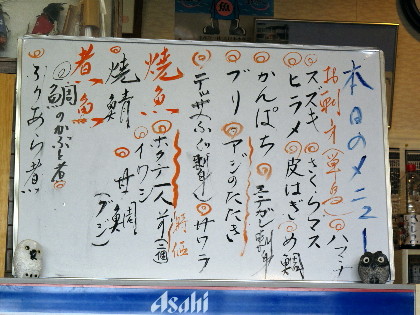 本日のメニュー
お刺身(単品)◎ハマチ
◎スズキ◎さくらマス
◎ヒラメ◎皮はぎ◎め鯛
◎かんぱち
◎ブリ◎アジのたたき
◎テッサ(ふぐ刺身)◎サワラ
焼魚◎ホタテ一人前(二個)
時価
◎焼鯖◎イワシ
煮魚
◎鯛のかぶと煮
◎ぶりあら煮
Asahi